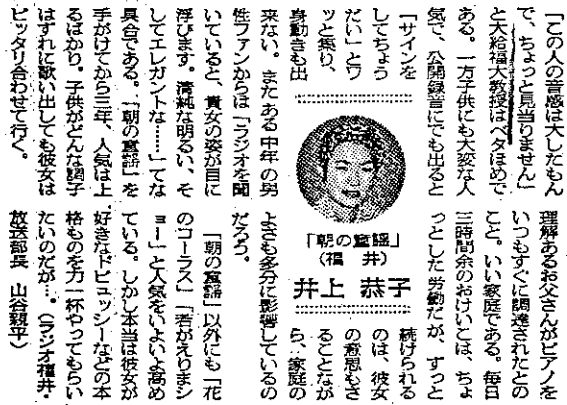 「この人の音感は大したもん
で、ちょっと見当りません」
と大給福大教授はベタほめで
ある。一方子供にも大変な人
気で、公開録音にでも出ると
「サインを
してちょう
だい」とワ
ッと集り、
身動きも出
来ない。またある中年の男
性ファンからは「ラジオを聞
いていると、貴女の姿が目に
浮びます。清純な明るい、そ
してエレガントな……」てな
具合である。「朝の童謡」を
手がけてから三年、人気は上
るばかり。子供がどんな調子
はずれに歌い出しても彼女は
ピッタリ合わせて行く。
「朝の童謡」
（福井）
井上恭子
理解あるお父さんがピアノを
いつもすぐに調達されたとの
こと。いい家庭である。毎日
三時間余のおけいこは、ちょ
っとした労働だが、ずっと
続けられる
のは、彼女
の意思もさ
ることなが
ら、家庭の
よさも多分に影響しているの
だろう。
「朝の童謡」以外にも「花
のコーラス」「若がえりまシ
ョー」と人気をいよいよ高め
ている。しかし本当は彼女が
好きなドビュッシーなどの本
格ものを力一杯やってもらい
たいのだが…。（ラジオ福井・
放送部長 山谷親平）